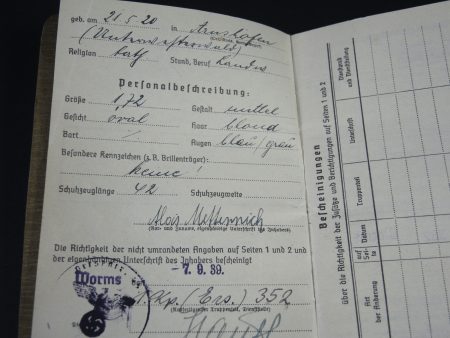 geb. am 21.5.20 in Arnshöfen
(Unterwesterwald)
Religion kath. Stand, Beruf
Personalbeschreibung:
Größe 1,72 Gestalt mittel
Gesicht oval Haar blond
Bart / Augen blau/grau
Besondere Kennzeichen (z.B. Brillenträger):
keine!
Schuhzeuglänge 42 Schuhzeugweite
Alois
(Vor- und Zuname, eigenhändige Unterschrift des Inhabers)
Die Richtigkeit der nicht umrandeten Angaben auf Seiten 1 und 2 und
der eigenhändigen Unterschrift des Inhabers bescheinigt
-7. 9. 39.
Worms
Kp. (Ers.) 352
(Ausfertigender Truppenteil, Dienststelle)
Bescheinigungen
über die Richtigkeit der Zusätze und Berichtigungen auf Seiten 1 und 2
Dienstgrad und Dienststellung
Unterschrift
Truppenteil
Datum
auf Seite
Art der Änderung